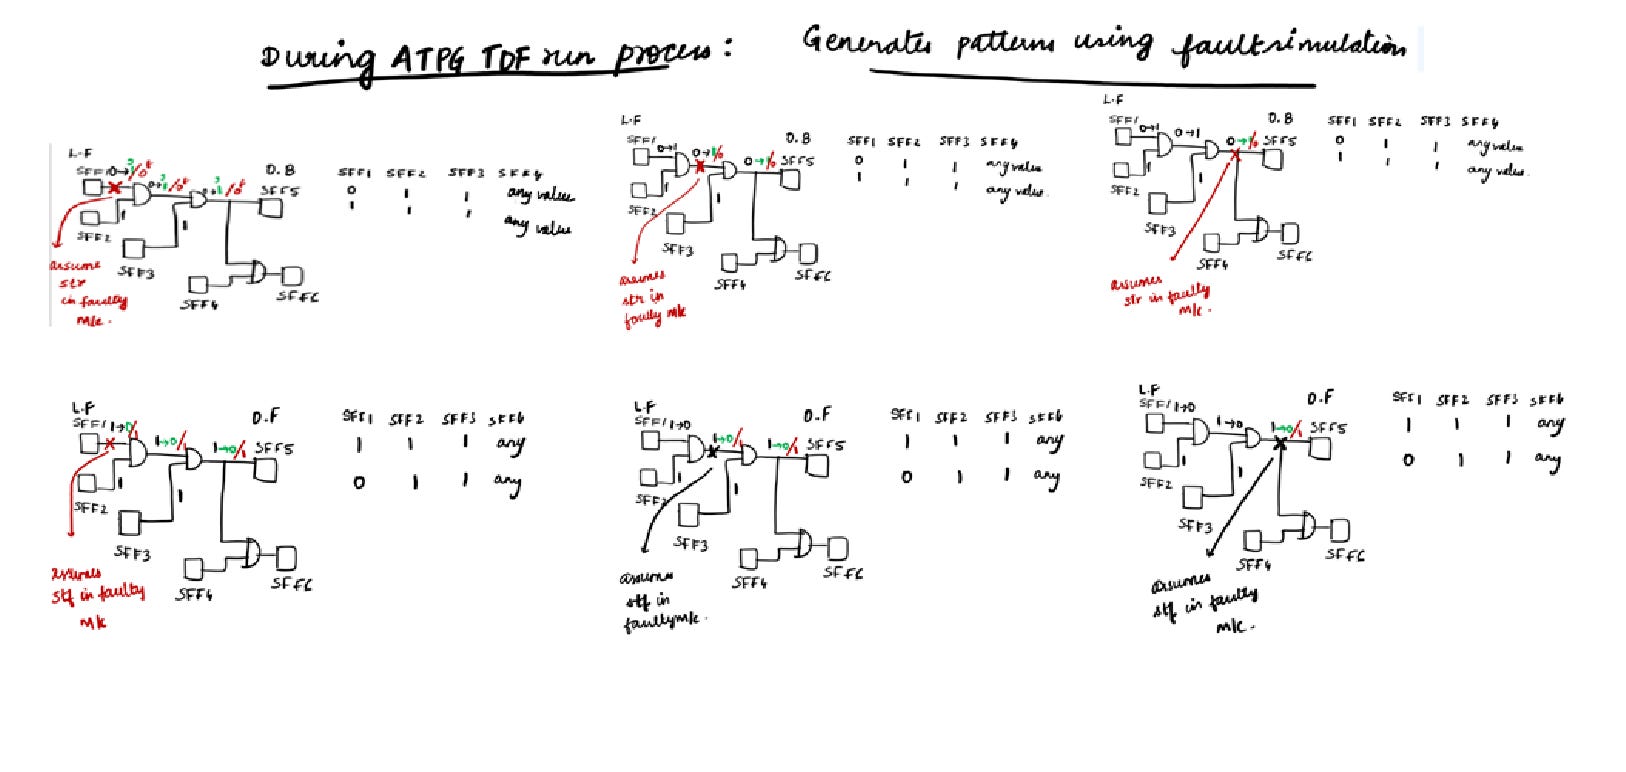 During ATPG TDF run process: Generates patterns using faultsimulation
L.F
SFF1 0→1/0
0→1/0
0→1/0
D.B
SFF5
SFF2
1
1
SFF3
SFF4
SFF6
assume
str
in faulty
m/c.
SFF1 SFF2 SFF3 SFF4
0 1 1 any value
1 1 1 any value
L.F
SFF1
0→1
0→1/0
0→1/0
D.B
SFF5
SFF2
1
1
SFF3
SFF4
SFF6
assumes
str in
faulty m/c
SFF1 SFF2 SFF3 SFF4
0 1 1 any value
1 1 1 any value.
L.F
SFF1
0→1
0→1
0→1/0
D.B
SFF5
SFF2
1
1
SFF3
SFF4
SFF6
assumes
str in faulty
m/c.
SFF1 SFF2 SFF3 SFF4
0 1 1 any value
1 1 1 any value.
L.F
SFF1 1→0/1
1→0/1
1→0/1
D.F
SFF5
SFF2
1
1
SFF3
SFF4
SFF6
assumes
stf in faulty
m/c
SFF1 SFF2 SFF3 SFF4
1 1 1 any
0 1 1 any
L.F
SFF1 1→0
1→0/1
1→0/1
D.F
SFF5
SFF2
1
SFF3
SFF4
SFF6
assumes
stf in
faulty m/c.
SFF1 SFF2 SFF3 SFF4
1 1 1 any
0 1 1 any
L.F
SFF1 1→0
1→0
1→0/1
D.F
SFF5
SFF2
1
SFF3
SFF4
SFF6
assumes
stf in faulty
m/c.
SFF1 SFF2 SFF3 SFF4
1 1 1 any
0 1 1 any